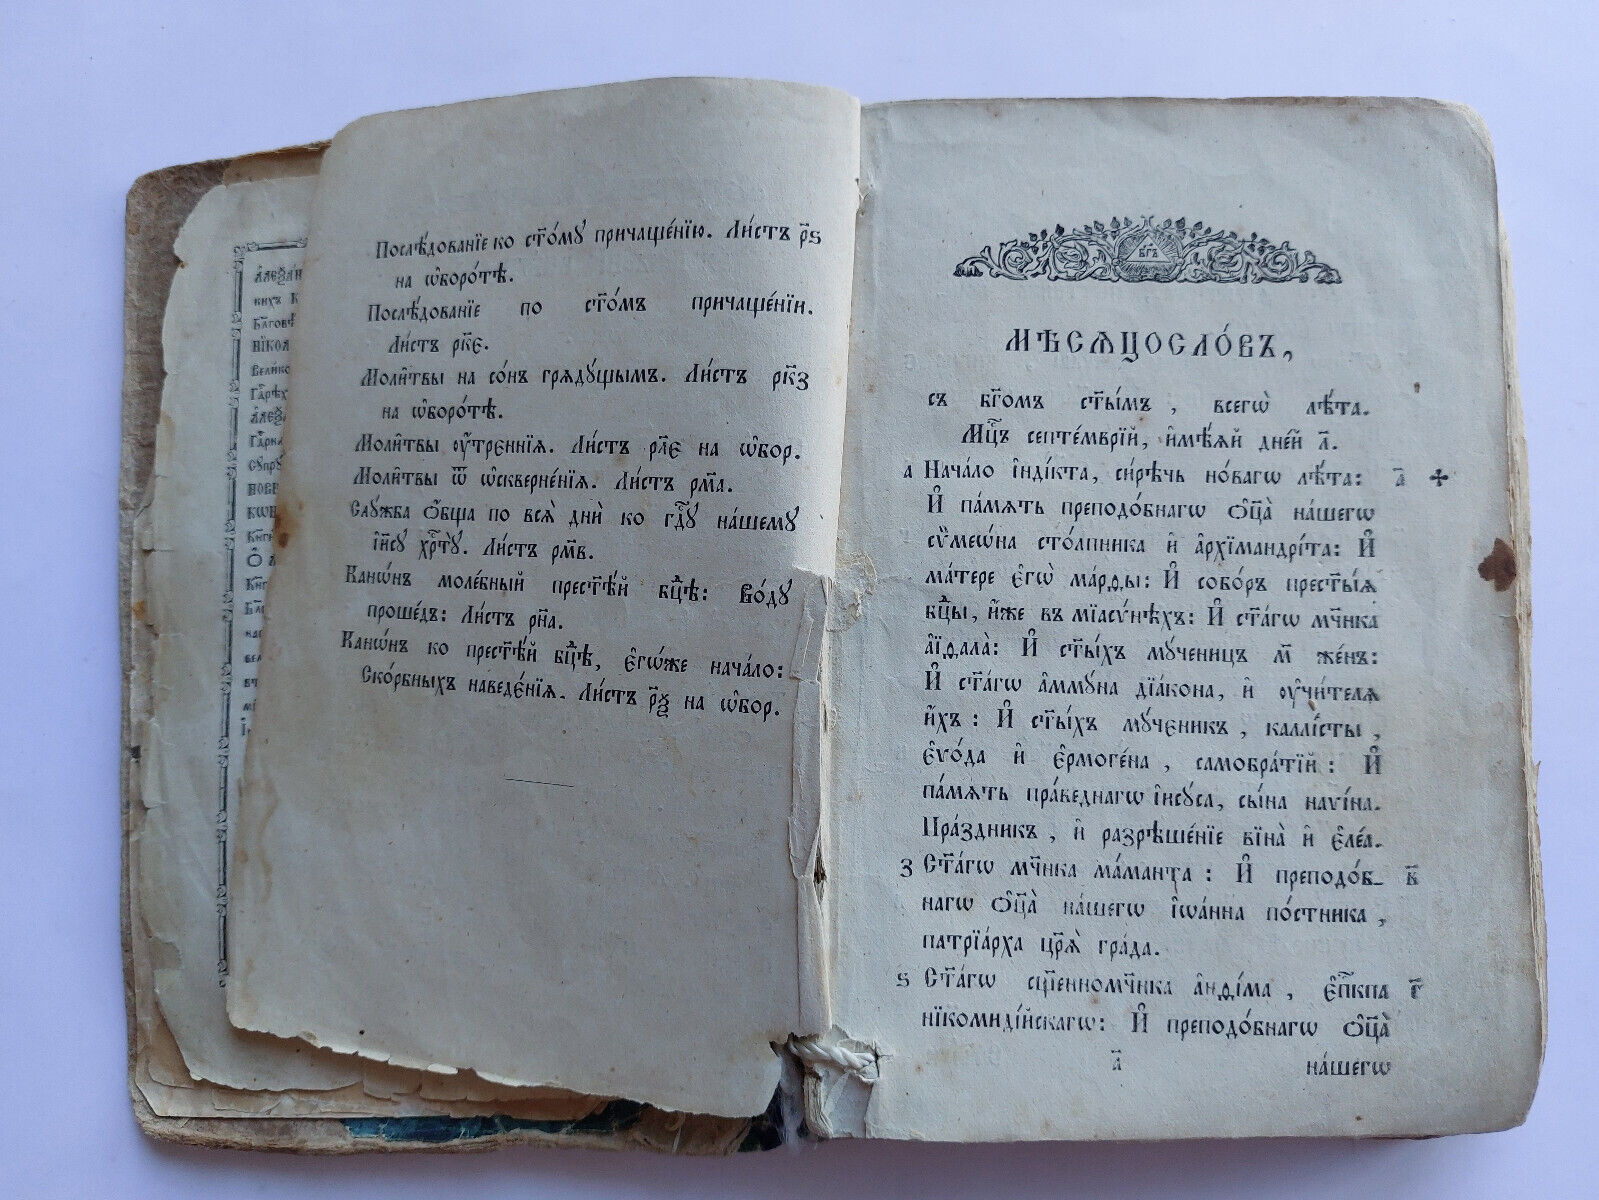 А҆леѯа́н
кихъ К
Бл҃гове
Нїкол
Вели́ко
Гдⷭ҇рѣхъ
А҆леѯа
Сꙋпрꙋ
Послѣ́дованїе ко ст҃о́мꙋ причаще́нїю. Ли́стъ р҃ѕ
на ѡ҆боро́тѣ.
Послѣ́дованїе по ст҃о́мъ причаще́нїи.
Ли́стъ рк҃є.
Моли̑твы на со́нъ грѧдꙋ́щымъ. Ли́стъ рк҃з
на ѡ҆боро́тѣ.
Моли̑твы ᲂу҆́тренїѧ. Ли́стъ рл҃є на ѡ҆бор.
Моли̑твы ѿ ѡ҆скверне́нїѧ. Ли́стъ рм҃а.
Слꙋ́жба Ѻ҆́бща по всѧ̑ дни̑ ко гдⷭ҇ꙋ на́шемꙋ
і҆и҃сꙋ хрⷭ҇тꙋ̀. Ли́стъ рм҃в.
Канѡ́нъ моле́бный прест҃ѣ́й бцⷣѣ: Во́дꙋ
проше́дъ: Ли́стъ рн҃а.
Канѡ́нъ ко прест҃ѣ́й бцⷣѣ, є҆гѡ́же нача́ло:
Ско́рбныхъ наведе́нїѧ. Ли́стъ р҃ѯ на ѡ҆бор.
БГЪ
МѢСѦЦОСЛО́ВЪ,
съ бг҃омъ ст҃ы́мъ, всегѡ̀ лѣ́та.
Мцⷭ҇ъ септе́мврїй, и҆мѣ́ѧй дне́й л҃.
а Нача́ло і҆ндї́кта, си́рѣчь но́вагѡ лѣ́та: а҃ ✠
И҆ па́мѧть преподо́бнагѡ ѻ҆ц҃а̀ на́шегѡ
сѷмеѡ́на сто́лпника и҆ а҆рхїмандрі́та: И҆
ма́тере є҆гѡ̀ ма́рѳы: И҆ собо́ръ прест҃ы́ѧ
бцⷣы, и҆́же въ мїасѵ́нѣхъ: И҆ ст҃а́гѡ мч҃нка
а҆їѳала̀: И҆ ст҃ы́хъ мꙋ́чениц м҃ же́нъ:
И҆ ст҃а́гѡ а҆ммꙋ́на дїа́кона, и҆ ᲂу҆чи́телѧ
и҆́хъ: И҆ ст҃ы́хъ мꙋ́ченик, каллі́сты,
є҆ѵо́да и҆ є҆рмоге́на, самобра́тїй: И҆
па́мѧть пра́веднагѡ і҆исꙋ́са, сы́на наѵі́на.
Пра́здник, и҆ разрѣше́нїе вїна̀ и҆ є҆ле́а.
з Ст҃а́гѡ мч҃нка ма́манта: И҆ преподо́б- в҃
нагѡ ѻ҆ц҃а̀ на́шегѡ і҆ѡа́нна по́стника,
патрїа́рха цр҃ѧ̀ гра́да.
ѕ Ст҃а́гѡ сщ҃енномч҃нка а҆нѳі́ма, є҆пⷭ҇кпа г҃
нїкомиді́йскагѡ: И҆ преподо́бнагѡ ѻ҆ц҃а̀
а҃ на́шегѡ